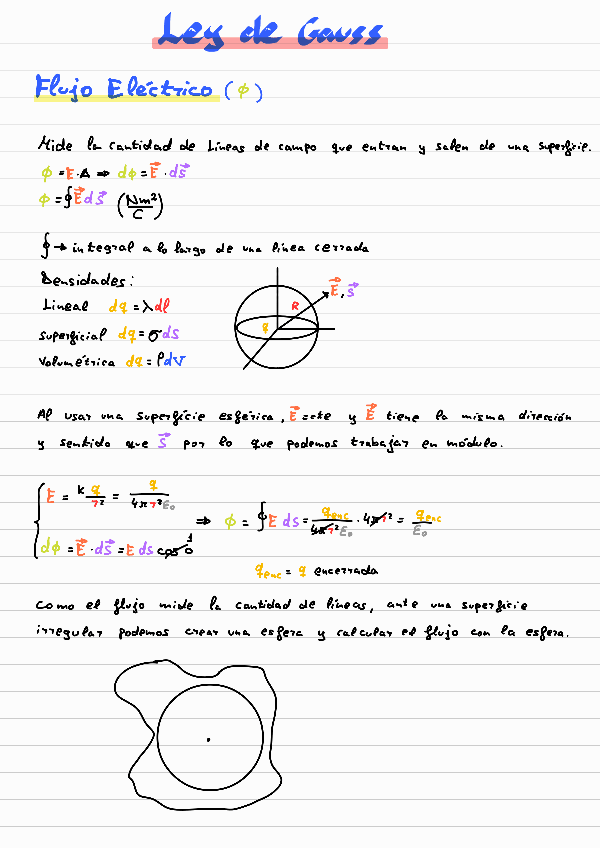 Ley de Gauss
Flujo Eléctrico (ϕ)
Mide la cantidad de líneas de campo que entran y salen de una superficie.
ϕ = E · A ⇒ dϕ = E⃗ · dS⃗
ϕ = ∮ E⃗ dS⃗ (Nm²/C)
∮ → integral a lo largo de una línea cerrada
Densidades:
Lineal dq = λ dl
Superficial dq = σ ds
Volumétrica dq = ρ dV
R
E⃗, S⃗
q
Al usar una superficie esférica, E⃗ = cte y E⃗ tiene la misma dirección
y sentido que S⃗ por lo que podemos trabajar en módulo.
E = K q/r² = q/4πr²ε₀
dϕ = E⃗ · dS⃗ = E ds cos 0 1
⇒ ϕ = ∮ E ds = qenc/4πr²ε₀ · 4πr² = qenc/ε₀
qenc = q encerrada
Como el flujo mide la cantidad de líneas, ante una superficie
irregular podemos crear una esfera y calcular el flujo con la esfera.